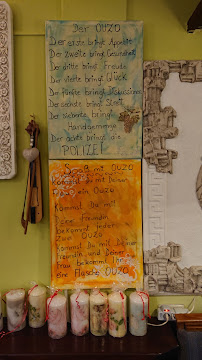 Der OUZO
Der erste bringt Apetite
Der zweite bringt Gesundheit
Der dritte bringt Freude
Der vierte bringt Glück
Der fünfte bringt Diskussion
Der sechste bringt Streit
Der siebente bringt
Handgemenge
Der achte bringt die
POLIZEI
Spaß mit OUZO
Kommst du mit Deinem
in Ouzo
Kommst Du mit
Zwei Freunden
bekommt jeder
Zwei OUZO
Kommst Du mit Deinem
Freundin und Deiner
Frau bekommst
Eine Flasche OUZO